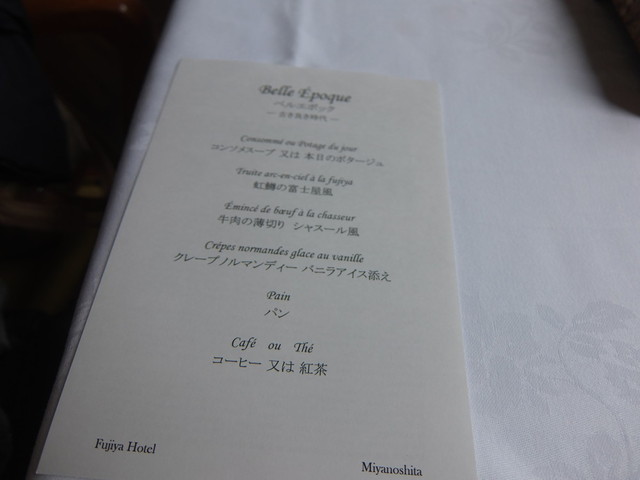 Belle Époque
ベルエポック
― 古き良き時代 ―
Consommé ou Potage du jour
コンソメスープ 又は 本日のポタージュ
Truite arc-en-ciel à la fujiya
虹鱒の富士屋風
Émincé de bœuf à la chasseur
牛肉の薄切り シャスール風
Crêpes normandes glace au vanille
クレープノルマンディー バニラアイス添え
Pain
パン
Café ou Thé
コーヒー 又は 紅茶
Fujiya Hotel
Miyanoshita